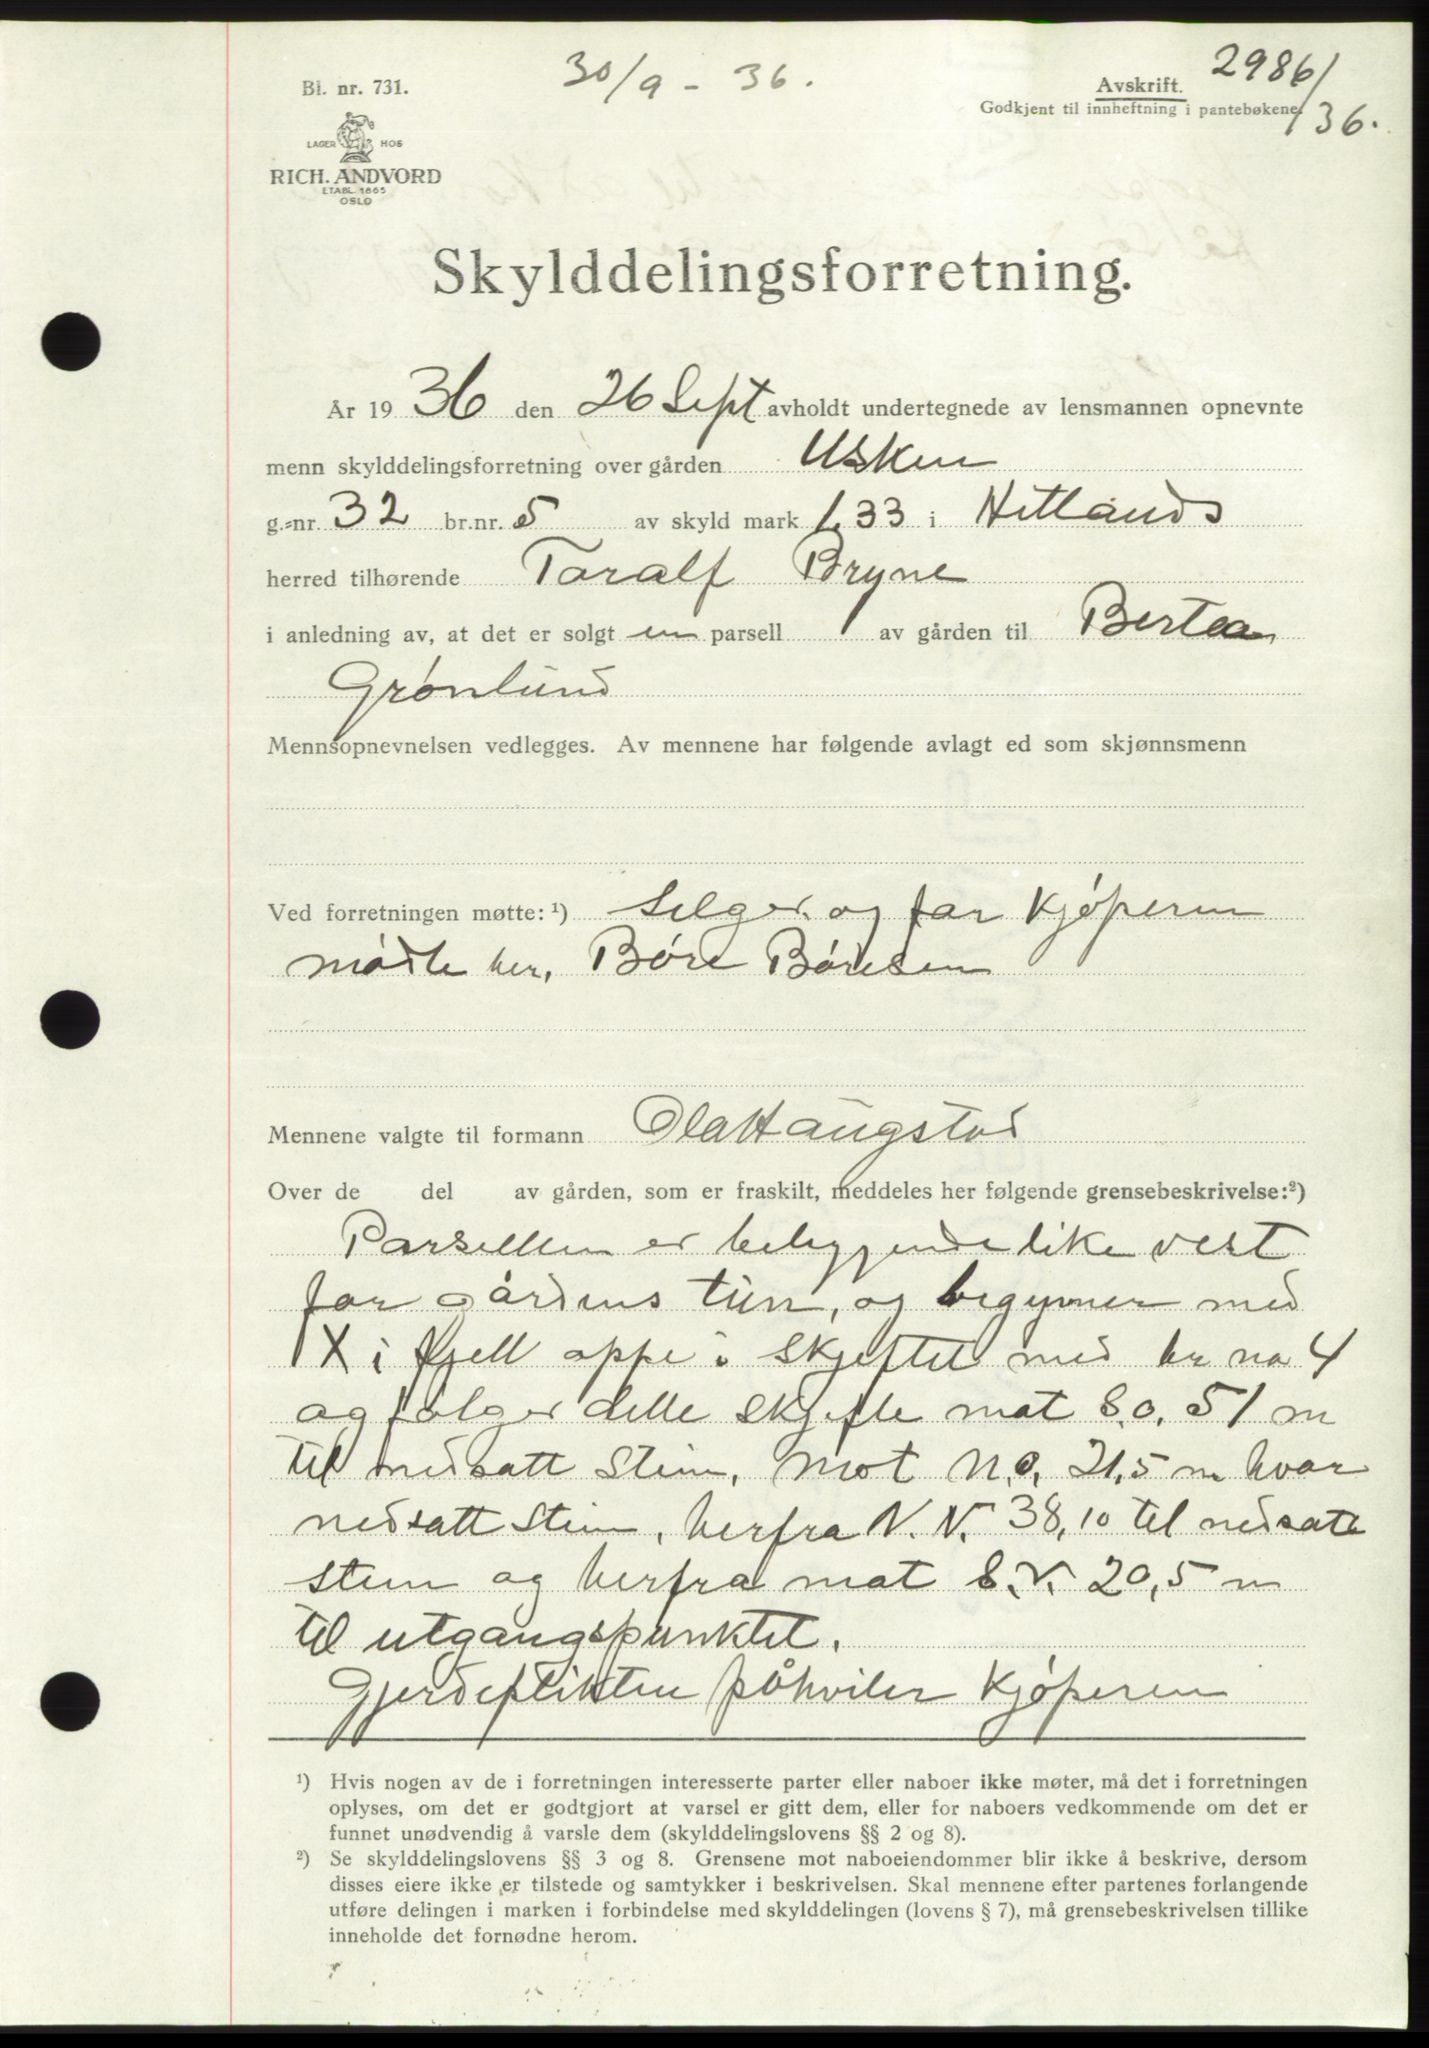 30/9 - 36.
2986/36.
Bl. nr. 731.
Avskrift.
Godkjent til innheftning i pantebøkene.
LAGER HOS
RICH. ANDVORD
ETABL. 1865
OSLO
Skylddelingsforretning.
År 1936 den 26 Sept avholdt undertegnede av lensmannen opnevnte
menn skylddelingsforretning over gården Usken
g.-nr. 32 br.nr. 5 av skyld mark 1.33 i Hetlands
herred tilhørende Toralf Bryne
i anledning av, at det er solgt en parsell av gården til
Grønlund
Mennsopnevnelsen vedlegges. Av mennene har følgende avlagt ed som skjønnsmenn
Ved forretningen møtte: ¹) Selger, og for Kjøperen
møtte her, Børe Børesen
Mennene valgte til formann Ola Haugstad
Over de del av gården, som er fraskilt, meddeles her følgende grensebeskrivelse:²)
Parsellen er beliggende like vest
for gårdens tun, og begynner med
X i fjell oppe i skjeftet med br no 4
og følger dette skjefte mot S.O. 51 m
til nedsatt Stein, mot N.O. 21,5 m hvor
nedsatt Stein, herfra N.V. 38,10 til nedsatt
stein og herfra mot S.V. 20,5 m
til utgangspunktet.
Gjerdeplikten påhviler Kjøperen
¹) Hvis nogen av de i forretningen interesserte parter eller naboer ikke møter, må det i forretningen
oplyses, om det er godtgjort at varsel er gitt dem, eller for naboers vedkommende om det er
funnet unødvendig å varsle dem (skylddelingslovens §§ 2 og 8).
²) Se skylddelingslovens §§ 3 og 8. Grensene mot naboeiendommer blir ikke å beskrive, dersom
disses eiere ikke er tilstede og samtykker i beskrivelsen. Skal mennene efter partenes forlangende
utføre delingen i marken i forbindelse med skylddelingen (lovens § 7), må grensebeskrivelsen tillike
inneholde det fornødne herom.